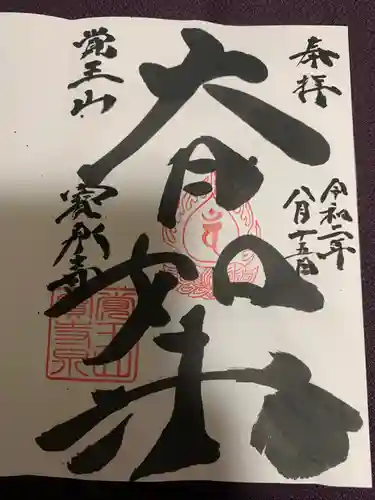 奉拝
令和二年
八月十五日
大日如来
覚王山